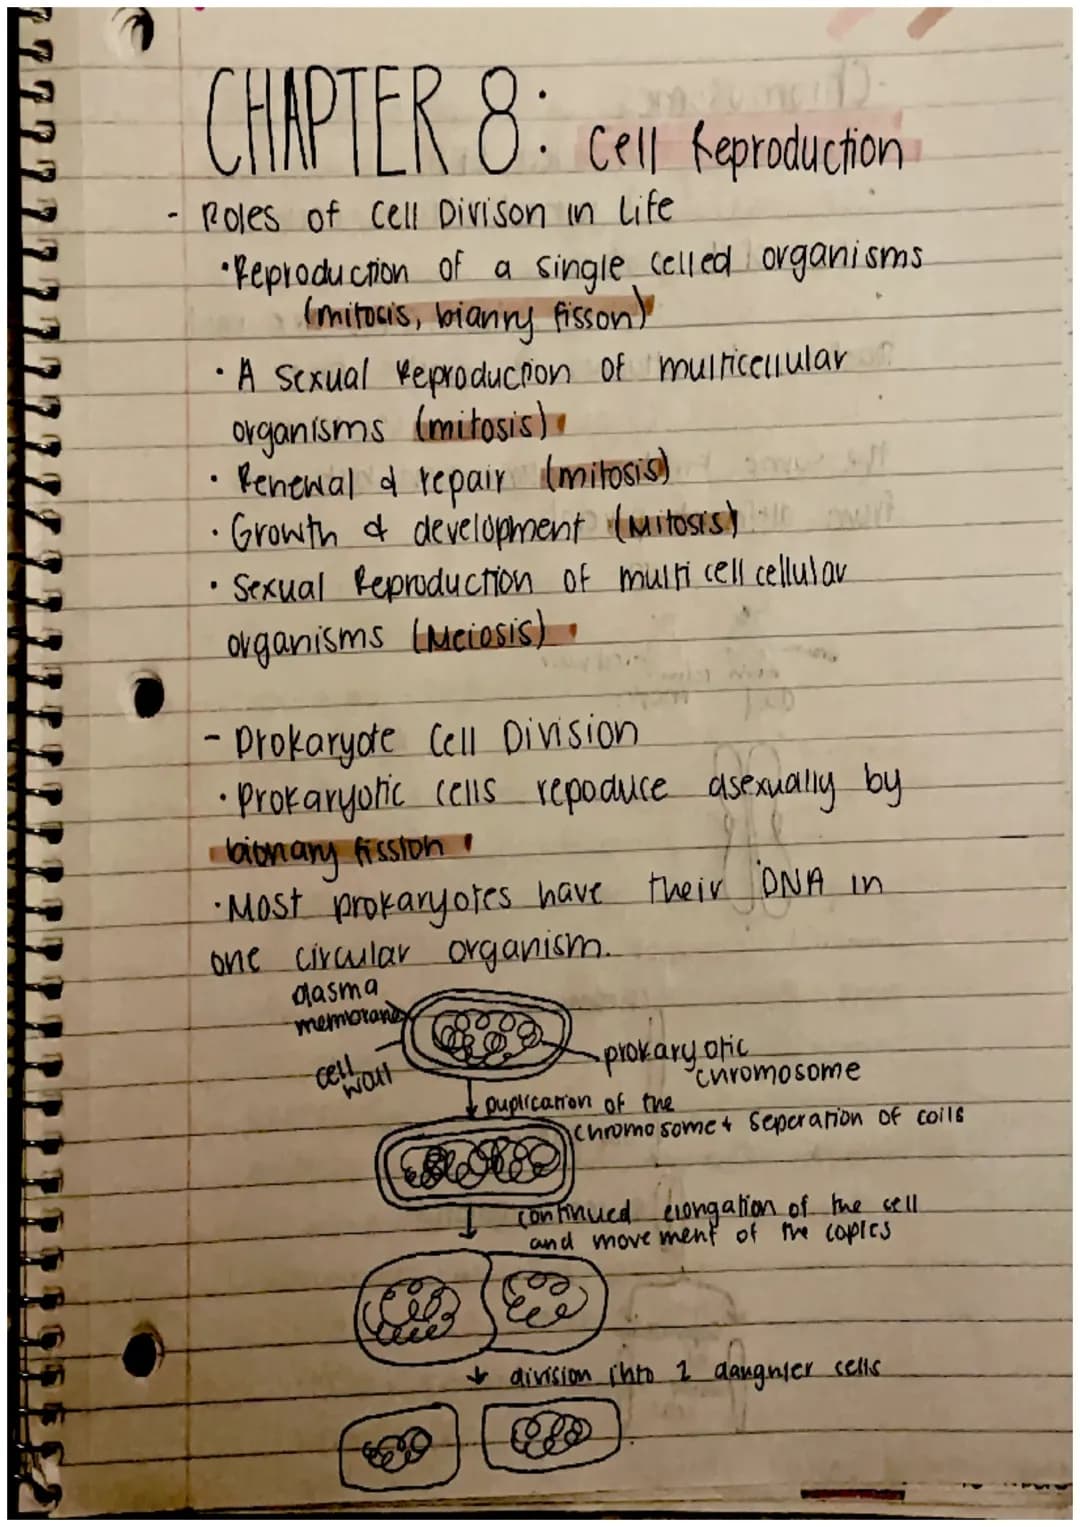 CHAPTER 8: Cell Reproduction
- Roles of Cell Divison in Life
•Reproduction of a single celled organisms
(mitosis, bianry fisson)
• A sexual Reproduction of multicellular
organisms (mitosis)
• Renewal & repair (mitosis)
• Growth & development (Mitosis)
• Sexual Reproduction of multi cell cellular
organisms (Meiosis)
- Prokaryote Cell Division
• Prokaryotic cells repoduce asexually by
bionary fission
• Most prokaryotes have their DNA in
one circular organism.
plasma
membrane
cell
wall
prokaryotic
chromosome
Duplication of the
chromosome + seperation of coils
continued elongation of the cell
and movement of the copies
division into 2 daughter cells